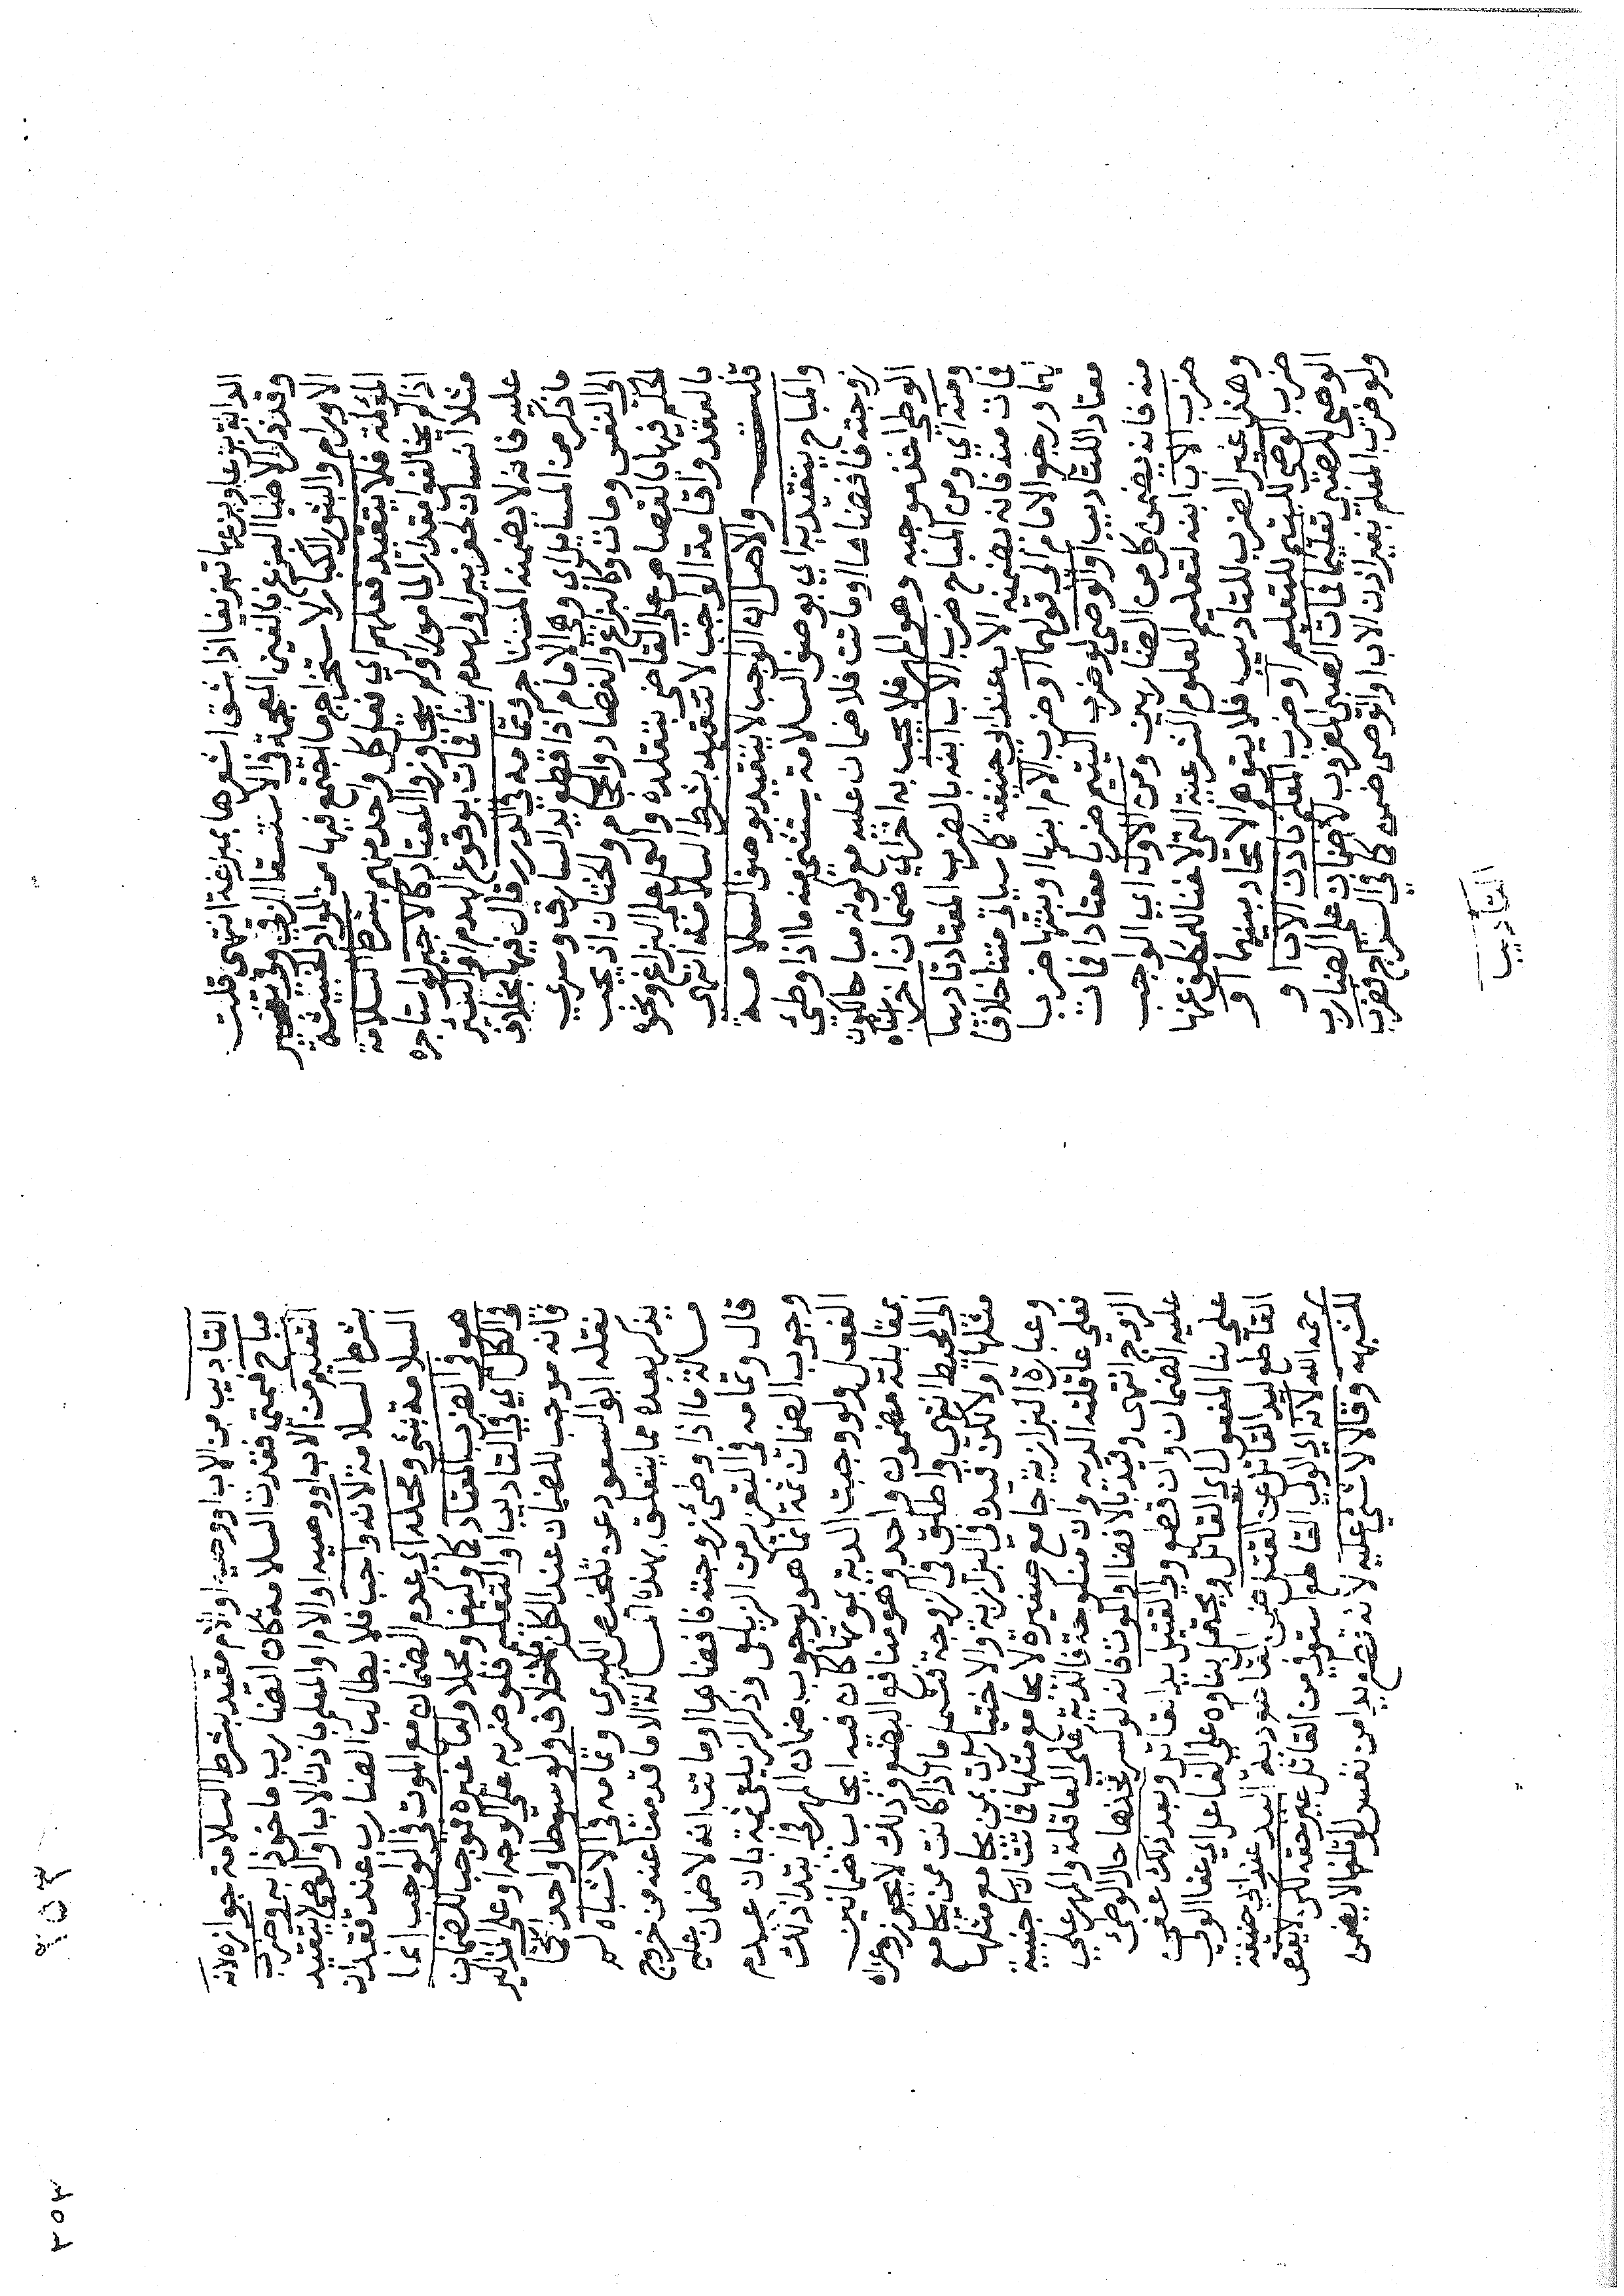 الدابة بزغا وبزعها تبزيغا اذا شق اشعرها بمبزغة انتهى قلت
وقد ذكر الاطبا البزغ بالغين المعجمة في الاستسقا الزقي وفي تفجير
الاورام والبثور الكبار لاستخراج ما اجتمع فيها من المواد الخبيثة
المؤلمة فلا يتقيد فعلهم اي فعل كل واحد منهم بشرط السلامة
اذا لم يخالفوا مقدار المامور او لم يجاوزوا المعتاد كالاجير لو استاجره
مثلا انسان لحفر بير او لهدم بنا فمات بوقوع الهدم او البير
عليه فانه لا يضمنه المستاجر وتمامه في الدرر قال فيها بخلاف
ما ذكر من المسايل اي وهي الامام اذا قطع يد السارق وسري
الى النفس ومات وكالبزاغ والفصاد والحجام والختان اذ يجب
الحكم فيها بالقصاص على القاضي بتقلده والعمل على البزاغ ونحوه
بالعقد واقامة الواجب لا تتقيد بشرط السلامة انتهى
قلت والاصل ان الواجب لا يتقيد بوصف السلامة
والمباح يتقيد به اي بوصف السلامة يستثنى منه ما اذا وطئ
زوجته فافضاها او ماتت فلا ضمان عليه مع كونه مباحا لكون
الوطي اخذ موجبه وهو المهر فلا يجب به اخر اي ضمان اخر اشباه
ومنه اي ومن المباح ضرب الاب ابنه بالضرب المعتاد تاديبا
فمات منه فانه يضمنه الاب عند ابي حنيفة كما سياتي متنا خلافا
لهما ورجوع الامام الى قولهما او ضرب الام ابنها او بنتها ضربا
معتاد للتاديب او الوصي لو ضرب اليتيم ضربا معتادا فمات
منه فانه يضمن كل من الضاربين ومن الاول اي الواجب
ضرب الاب ابنه لتعليم العلوم الشرعية التي لا غنا للمكلف عنها
وهذا غير الضرب للتاديب فلا يتوهم الاتحاد بينهما او
ضرب الوصي لليتيم للتعليم او ضرب المعلم باذن الاب او
الوصي للصبي تعليما فمات الصبي المضروب لا ضمان على الضارب
ولو ضرب المعلم بغير اذن الاب او الوصي ضمن كما في السراج فضرب
التأديب
التاديب من الاب او وصيه او الام مقيد بشرط السلامة جوازه لانه
مباح فمتى فقدت السلامة كان الضارب ماخوذا به وضرب
التعليم من الاب او وصيه او الام او المعلم باذن الاب او الوصي لا يتقيد
بشرط السلامة لانه واجب فلا يطالب الضارب عند فقدان
السلامة بشي ومحله اي عدم الضمان مع الموت في الواجب انما
هو في الضرب المعتاد كما وكيفا ومحلا واما غيره فموجب للضمان
في الكل اي في التاديب او التعليم فلو ضربه على الوجه او على المذاكير
فانه موجب للضمان عند الكل بلا خلاف ولو سوطا واحدا كما
نقله ابو السعود عن تلخيص الكبرى وتمامه في الاشباه لم
يذكر بعده مما يتعلق بهذه المسالة الا ما قدمناه عنه من خروج
مسالة ما اذا وطئ زوجته فافضاها او ماتت انه لا ضمان عليه
قال وتمامه في التعزير من الزيلعي وذكر الزيلعي ثمة بان عدم
وجوب الضمان ثمة انما هو بوجوب ضمان المهر في ابتدا ذلك
الفعل ولو وجبت الدية بموتها كان فيه ايجاب ضمانين
بمقابلة مضمون واحد وهو منافع البضع وذلك لا يجوز وعزاه
الى المحيط انتهى واطلق في الزوجة فشمل ما اذا كانت ممن يجامع
مثلها اولا لكن قيده في البزازية والاختيارات بمن يجامع مثلها
وعبارة البزازية جامع صغيرة لا يجامع مثلها فماتت ان اجنبية
فعلى عاقلته الدية وان منكوحة فالدية على العاقلة والمهر على
الزوج انتهى وقيد بالافضا والموت فانه لو كسر فخذها حال الوطئ
عليه الضمان وان قطع ولي القتيل يد القاتل وبعد ذلك عفى
على بنا المفعول اي القاتل ويحتمل بناوه على الفاعل اي عفا الولي
القاطع ليد القاتل عن القتل ضمن القاطع دية اليد عند ابي حنيفة
رحمه الله لانه اي الولي القاطع استوفى من القاتل غير حقه لكن لا يقتص
للشبهة وقالا لا شي عليه لانه قطع يدا من نفس لو اتلفها لا يضمن
٢٥٣
٢٥٣